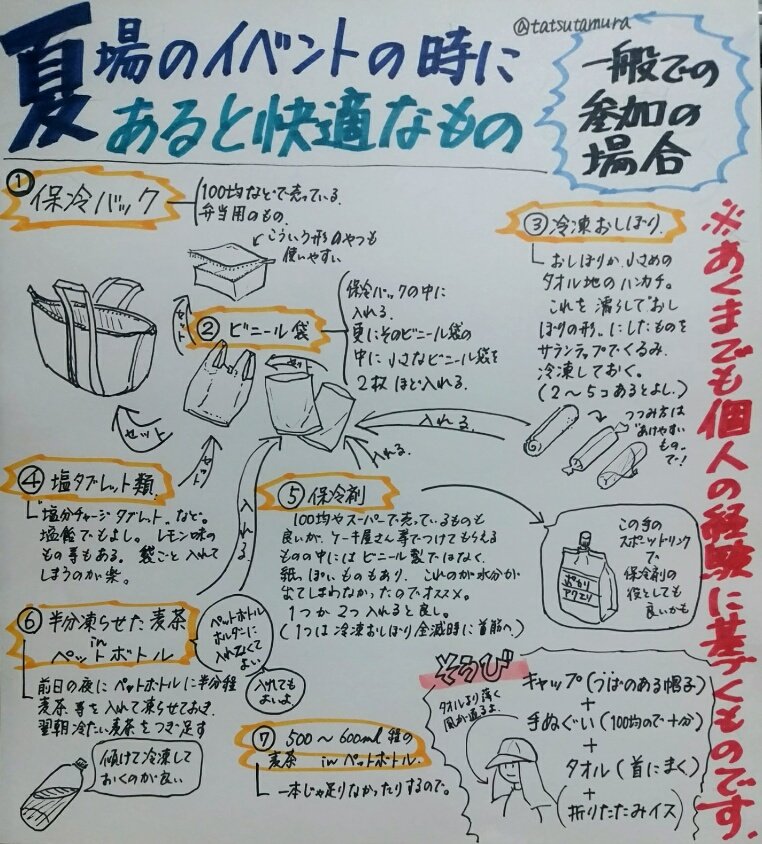 @tatsutamura
夏場のイベントの時に
あると快適なもの
一般での
参加の
場合
※あくまでも個人の経験に基づくものです.
①保冷バック
100均などで売っている
弁当用のもの.
こういう形のやつも
使いやすい
セット
②ビニール袋
保冷バックの中に
入れる.
更にそのビニール袋の
中に小さなビニール袋を
2枚ほど入れる.
セット
セット
セット
③冷凍おしぼり.
おしぼりか小さめの
タオル地のハンカチ。
これを濡らして"おし
ぼりの形"にしたものを
サランラップでくるみ
冷凍しておく。
(2〜5コあるとよし.)
つつみ方は
"あけやすい
もの"
で!
入れる.
入れる.
入れる
④塩タブレット類.
"塩分チャージタブレット"など。
塩飴でもよし。レモン味の
もの等もある。袋ごと入れて
しまうのが楽。
⑤保冷剤
100均やスーパーで売っているものも
良いが、ケーキ屋さん等でつけてもらえる
ものの中にはビニール製ではなく、
紙っぽいものもあり、これのが水分が
出てしまわなかったのでオススメ。
1つか2つ入れると良し。
(1つは冷凍おしぼり全滅時に首筋へ)
この手の
スポーツドリンク
で
保冷剤の
役としても
良いかも
ぽかり
アクエリ
⑥半分凍らせた麦茶
in
ペットボトル
ペットボトル
ホルダーに
入れなくて
よい
入れても
よいよ
前日の夜にペットボトルに半分程
麦茶等を入れて凍らせておき、
翌朝冷たい麦茶をつぎ足す
傾けて冷凍して
おくのが良い
⑦500〜600ml程の
麦茶 inペットボトル.
一本じゃ足りなかったりするので。
そうび
タオルより薄く
風が通るよ.
キャップ(つばのある帽子)
+
手ぬぐい(100均ので十分)
+
タオル(首にまく)
+
(折りたたみイス)